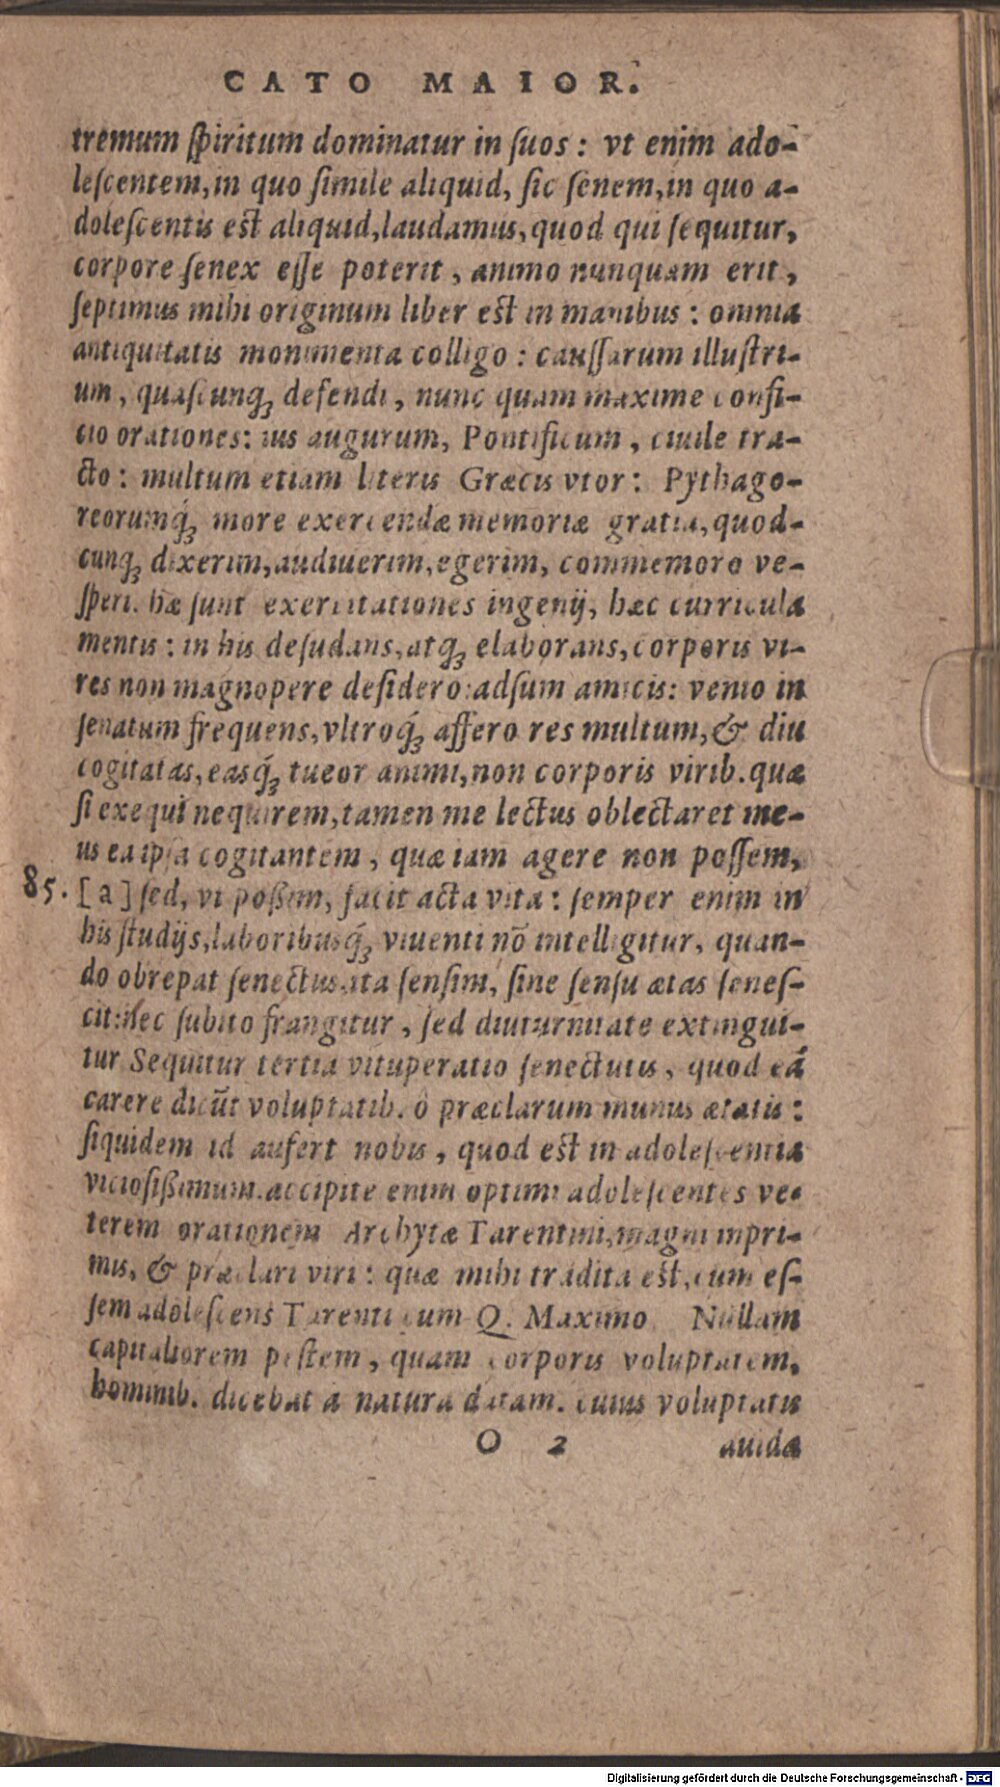 CATO MAIOR.
tremum ſpiritum dominatur in ſuos: vt enim ado-
leſcentem, in quo ſimile aliquid, ſic ſenem, in quo a-
doleſcentis est aliquid, laudamus, quod qui ſequitur,
corpore ſenex eſſe poterit, animo nunquam erit,
ſeptimus mihi originum liber est in manibus: omnia
antiquitatis monumenta colligo: cauſſarum illuſtri-
um, quaſcunq́ꝫ defendi, nunc quam maxime confi-
cio orationes: ius augurum, Pontificum, ciuile tra-
cto: multum etiam literis Græcis vtor: Pythago-
reorumq́ꝫ more exercendæ memoriæ gratia, quod-
cunqꝫ dixerim, audiuerim, egerim, commemoro ve-
ſperi. hæ ſunt exercitationes ingenij, hæc curricula
mentis: in his deſudans, atqꝫ elaborans, corporis vi-
res non magnopere deſidero: adſum amicis: venio in
ſenatum frequens, vltroq́ꝫ affero res multum, & diu
cogitatas, easq́ꝫ tueor animi, non corporis virib. quæ
ſi exequi nequirem, tamen me lectus oblectaret me-
us ea ipſa cogitantem, quæ iam agere non poſſem,
85. [a] ſed, vt poßim, facit acta vita: ſemper enim in
his ſtudijs, laboribusq́ꝫ viuenti nō intelligitur, quan-
do obrepat ſenectus. ita ſenſim, ſine ſenſu ætas ſeneſ-
cit: nec ſubito frangitur, ſed diuturnitate extingui-
tur Sequitur tertia vituperatio ſenectutis, quod eā
carere dicūt voluptatib. ô præclarum munus ætatis:
ſiquidem id aufert nobis, quod est in adoleſcentia
vicioſißimum. accipite enim optimi adoleſcentes ve-
terem orationem Archytæ Tarentini, magni inpri-
mis, & præclari viri: quæ mihi tradita est, cum eſ-
ſem adoleſcens Tarenti cum Q. Maximo Nullam
capitaliorem pestem, quam corporis voluptatem,
hominib. dicebat a natura datam. cuius voluptatis
O 2 auidæ
Digitalisierung gefördert durch die Deutsche Forschungsgemeinschaft - DFG